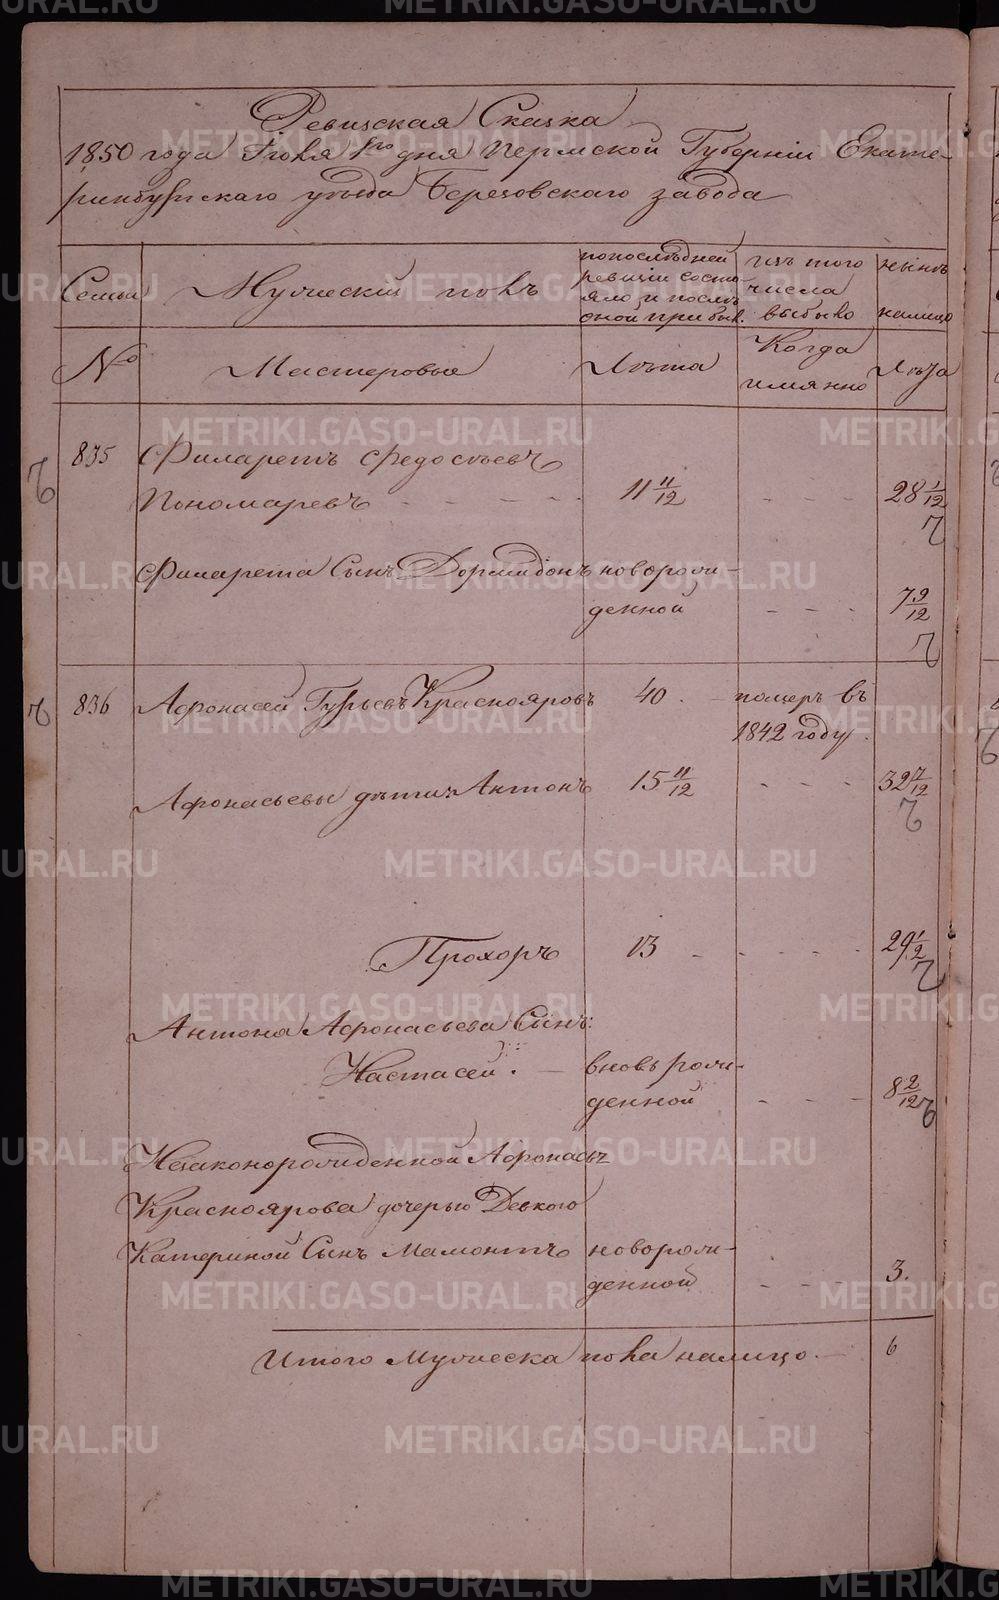 Ревизская Сказка
1850 года Июня 1го дня Пермской Губернiи Екате-
ринбургскаго уѣзда Березовскаго завода
Семьи
Мужескiй полъ
попослѣдней
ревизiи состо-
яло, и послѣ
оной прибыл.
изъ того
числа
выбыло
нынѣ
налицо
№
Мастеровые
Лѣта
Когда
имянно
Лѣта
835 Филаретъ Федосѣевъ
Пономаревъ - - - - 11 11/12 - - - 28 1/12
Филарета Сынъ Дормидонъ новорож-
денной - - - 7 9/12
836 Афонасей Гурьевъ Краснояровъ 40. - померъ въ
1842 году.
Афонасьевы дѣти: Антонъ 15 11/12 - - - 32 7/12
Прохоръ 13 - - - - 29 1/2
Антона Афонасьева Сынъ:
Настасей. - вновь рож-
денной - - - 8 2/12
Незаконорожденной Афонасья
Красноярова дочерью Девкою
Катериной Сынъ Мамонтъ новорож-
денной - - - 3.
Итого Мужеска пола налицо - 6
METRIKI.GASO-URAL.RU